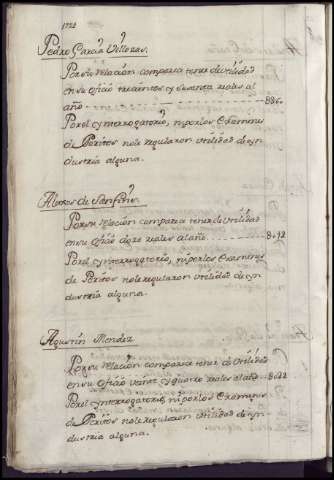 Pedro Garcia Villozas.
Por su relacion comparece tener de utilidad
en su oficio trecientos y sesenta reales al
año
Por el ynterrogatorio, ni por los examenes
de Peritos no le regularon utilidad de yn
dustria alguna.
Por su relacion comparece tener de utilidad
en su oficio doze reales al año 8012
Por el ynterrogatorio, ni por los examenes
de Peritos no le regularon utilidad de yn
dustria alguna.
Agustin Mendez
Por su relacion comparece tener de utilidad
en su oficio veinte y quatro reales al año
Por el ynterrogatorio, ni por los examenes
de Peritos no le regularon utilidad de yn
dustria alguna.